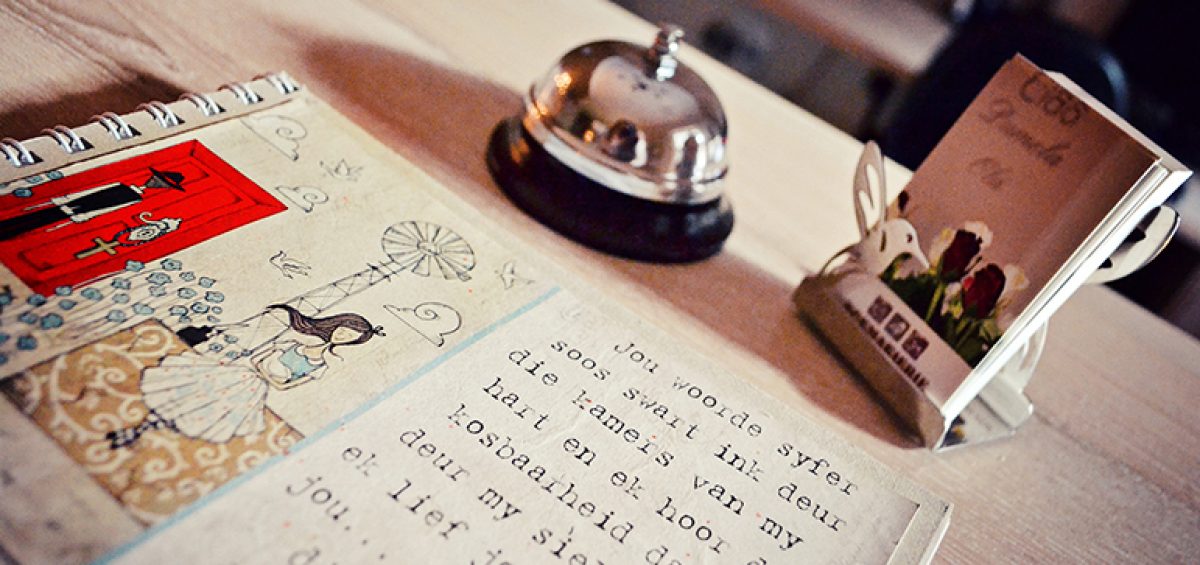 Jou woorde syfer
soos swart ink deur
die kamers van my
hart en ek hoor
kosbaarheid
deur my
ek lief
jou...
Ciao
Pamela